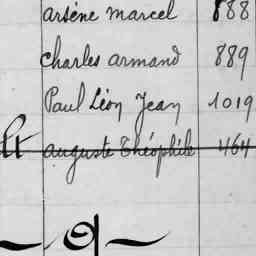 arsène marcel 888
charles armand 889
Paul Léon Jean 1019
auguste théophile 464